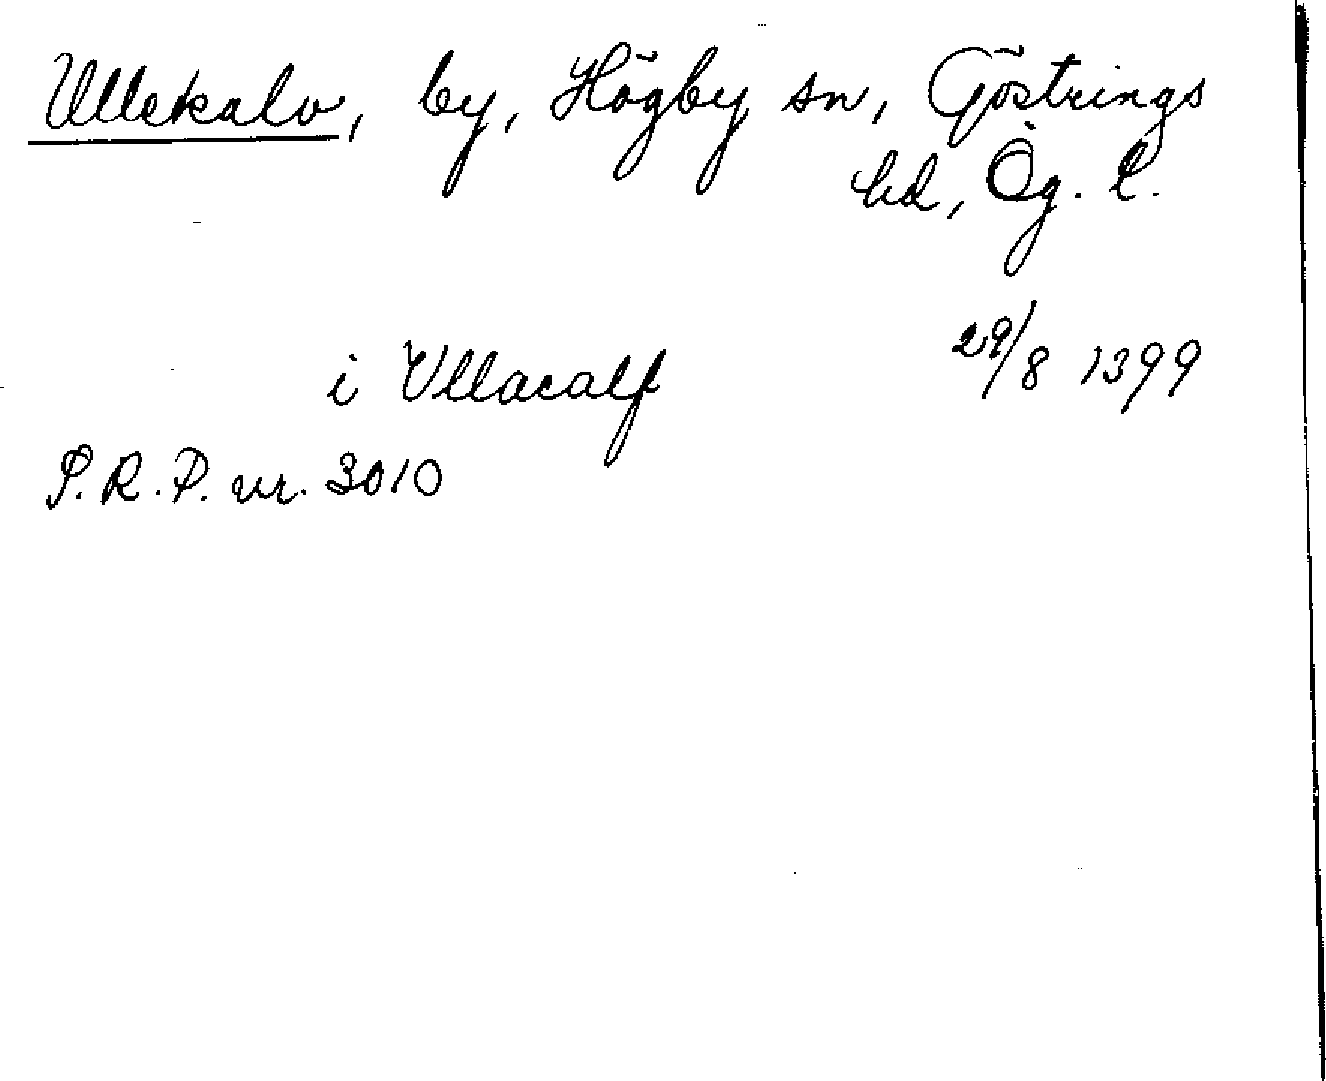 Ullekalv, by, Högby sn, Göstrings
hd, Ög. l.
i Vllacalf 29/8 1399
P.R.P. nr. 3010